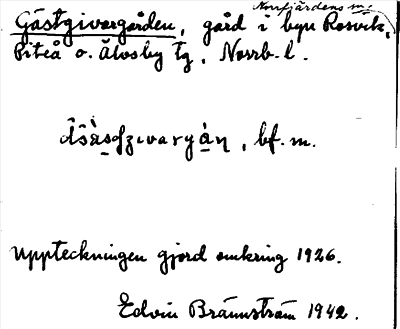 Norrfjärdens sn.
Gästgivargården, gård i byn Rosvik,
Piteå o. Älvsby tg, Norrb. l.
bf. m.
Uppteckningen gjord omkring 1926.
Edvin Brännström 1942.